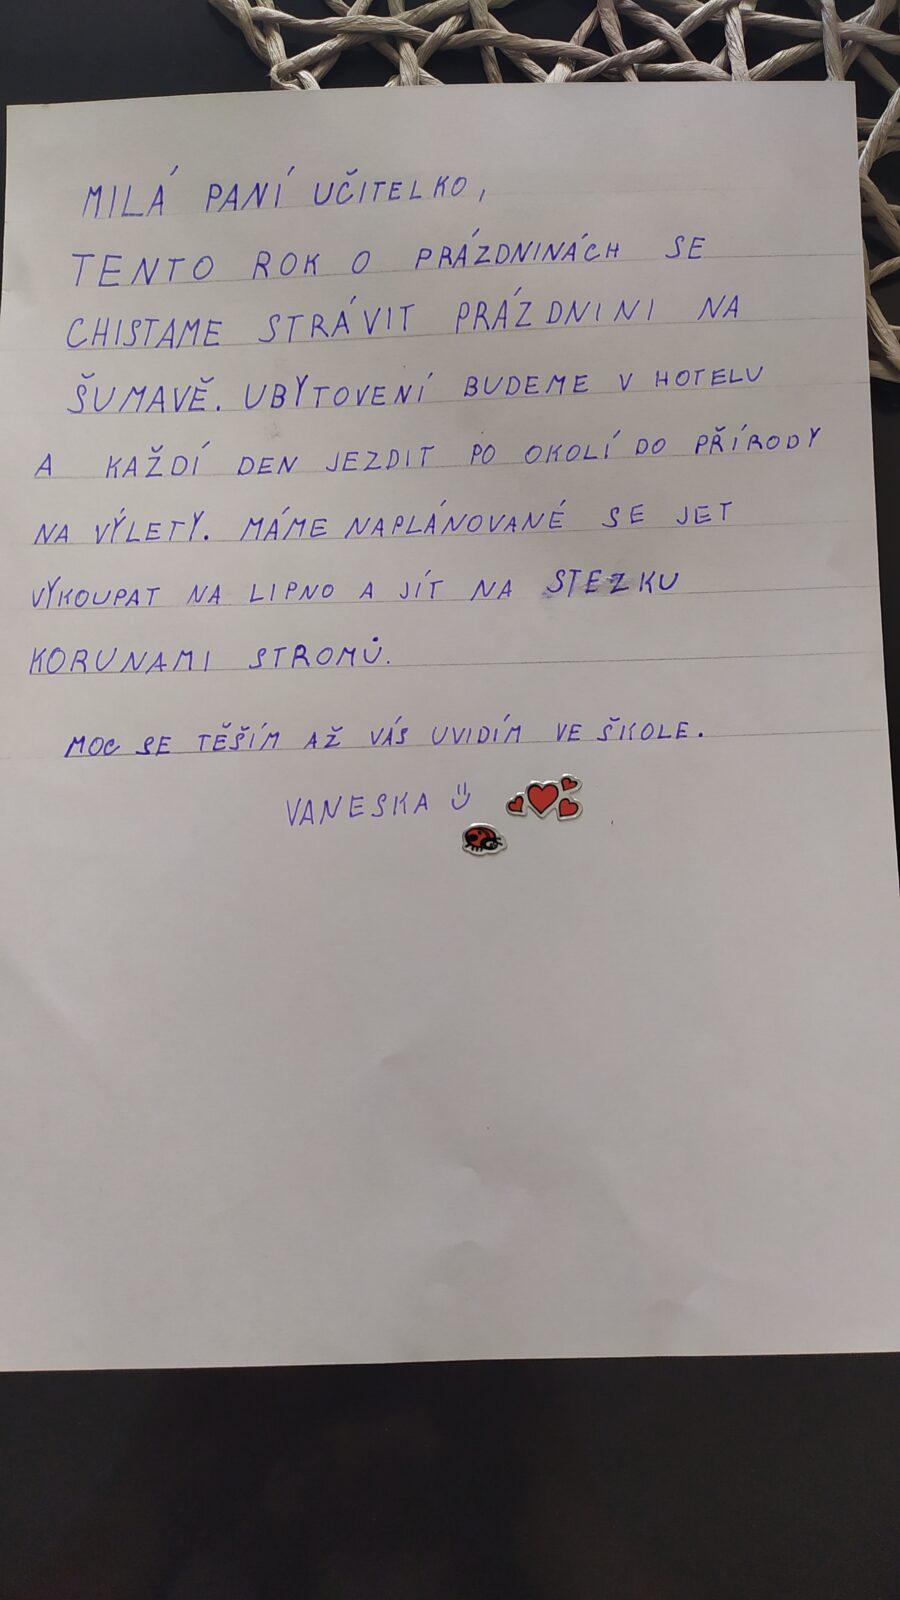 MILÁ PANÍ UČITELKO,
TENTO ROK O PRÁZDNINÁCH SE
CHISTAME STRÁVIT PRÁZDNINI NA
ŠUMAVĚ. UBYTOVENÍ BUDEME V HOTELU
A KAŽDÍ DEN JEZDIT PO OKOLÍ DO PŘÍRODY
NA VÝLETY. MÁME NAPLÁNOVANÉ SE JET
VYKOUPAT NA LIPNO A JÍT NA STEZKU
KORUNAMI STROMŮ.
MOC SE TĚŠÍM AŽ VÁS UVIDÍM VE ŠKOLE.
VANESKA